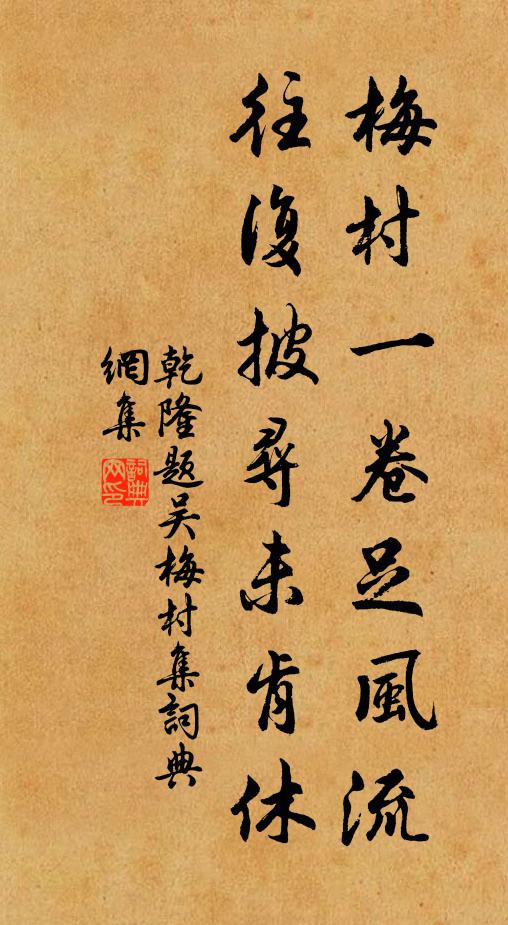 梅村一卷足風流
往復披尋未肯休
乾隆题吴梅村集詞典
網集
詞典
网印